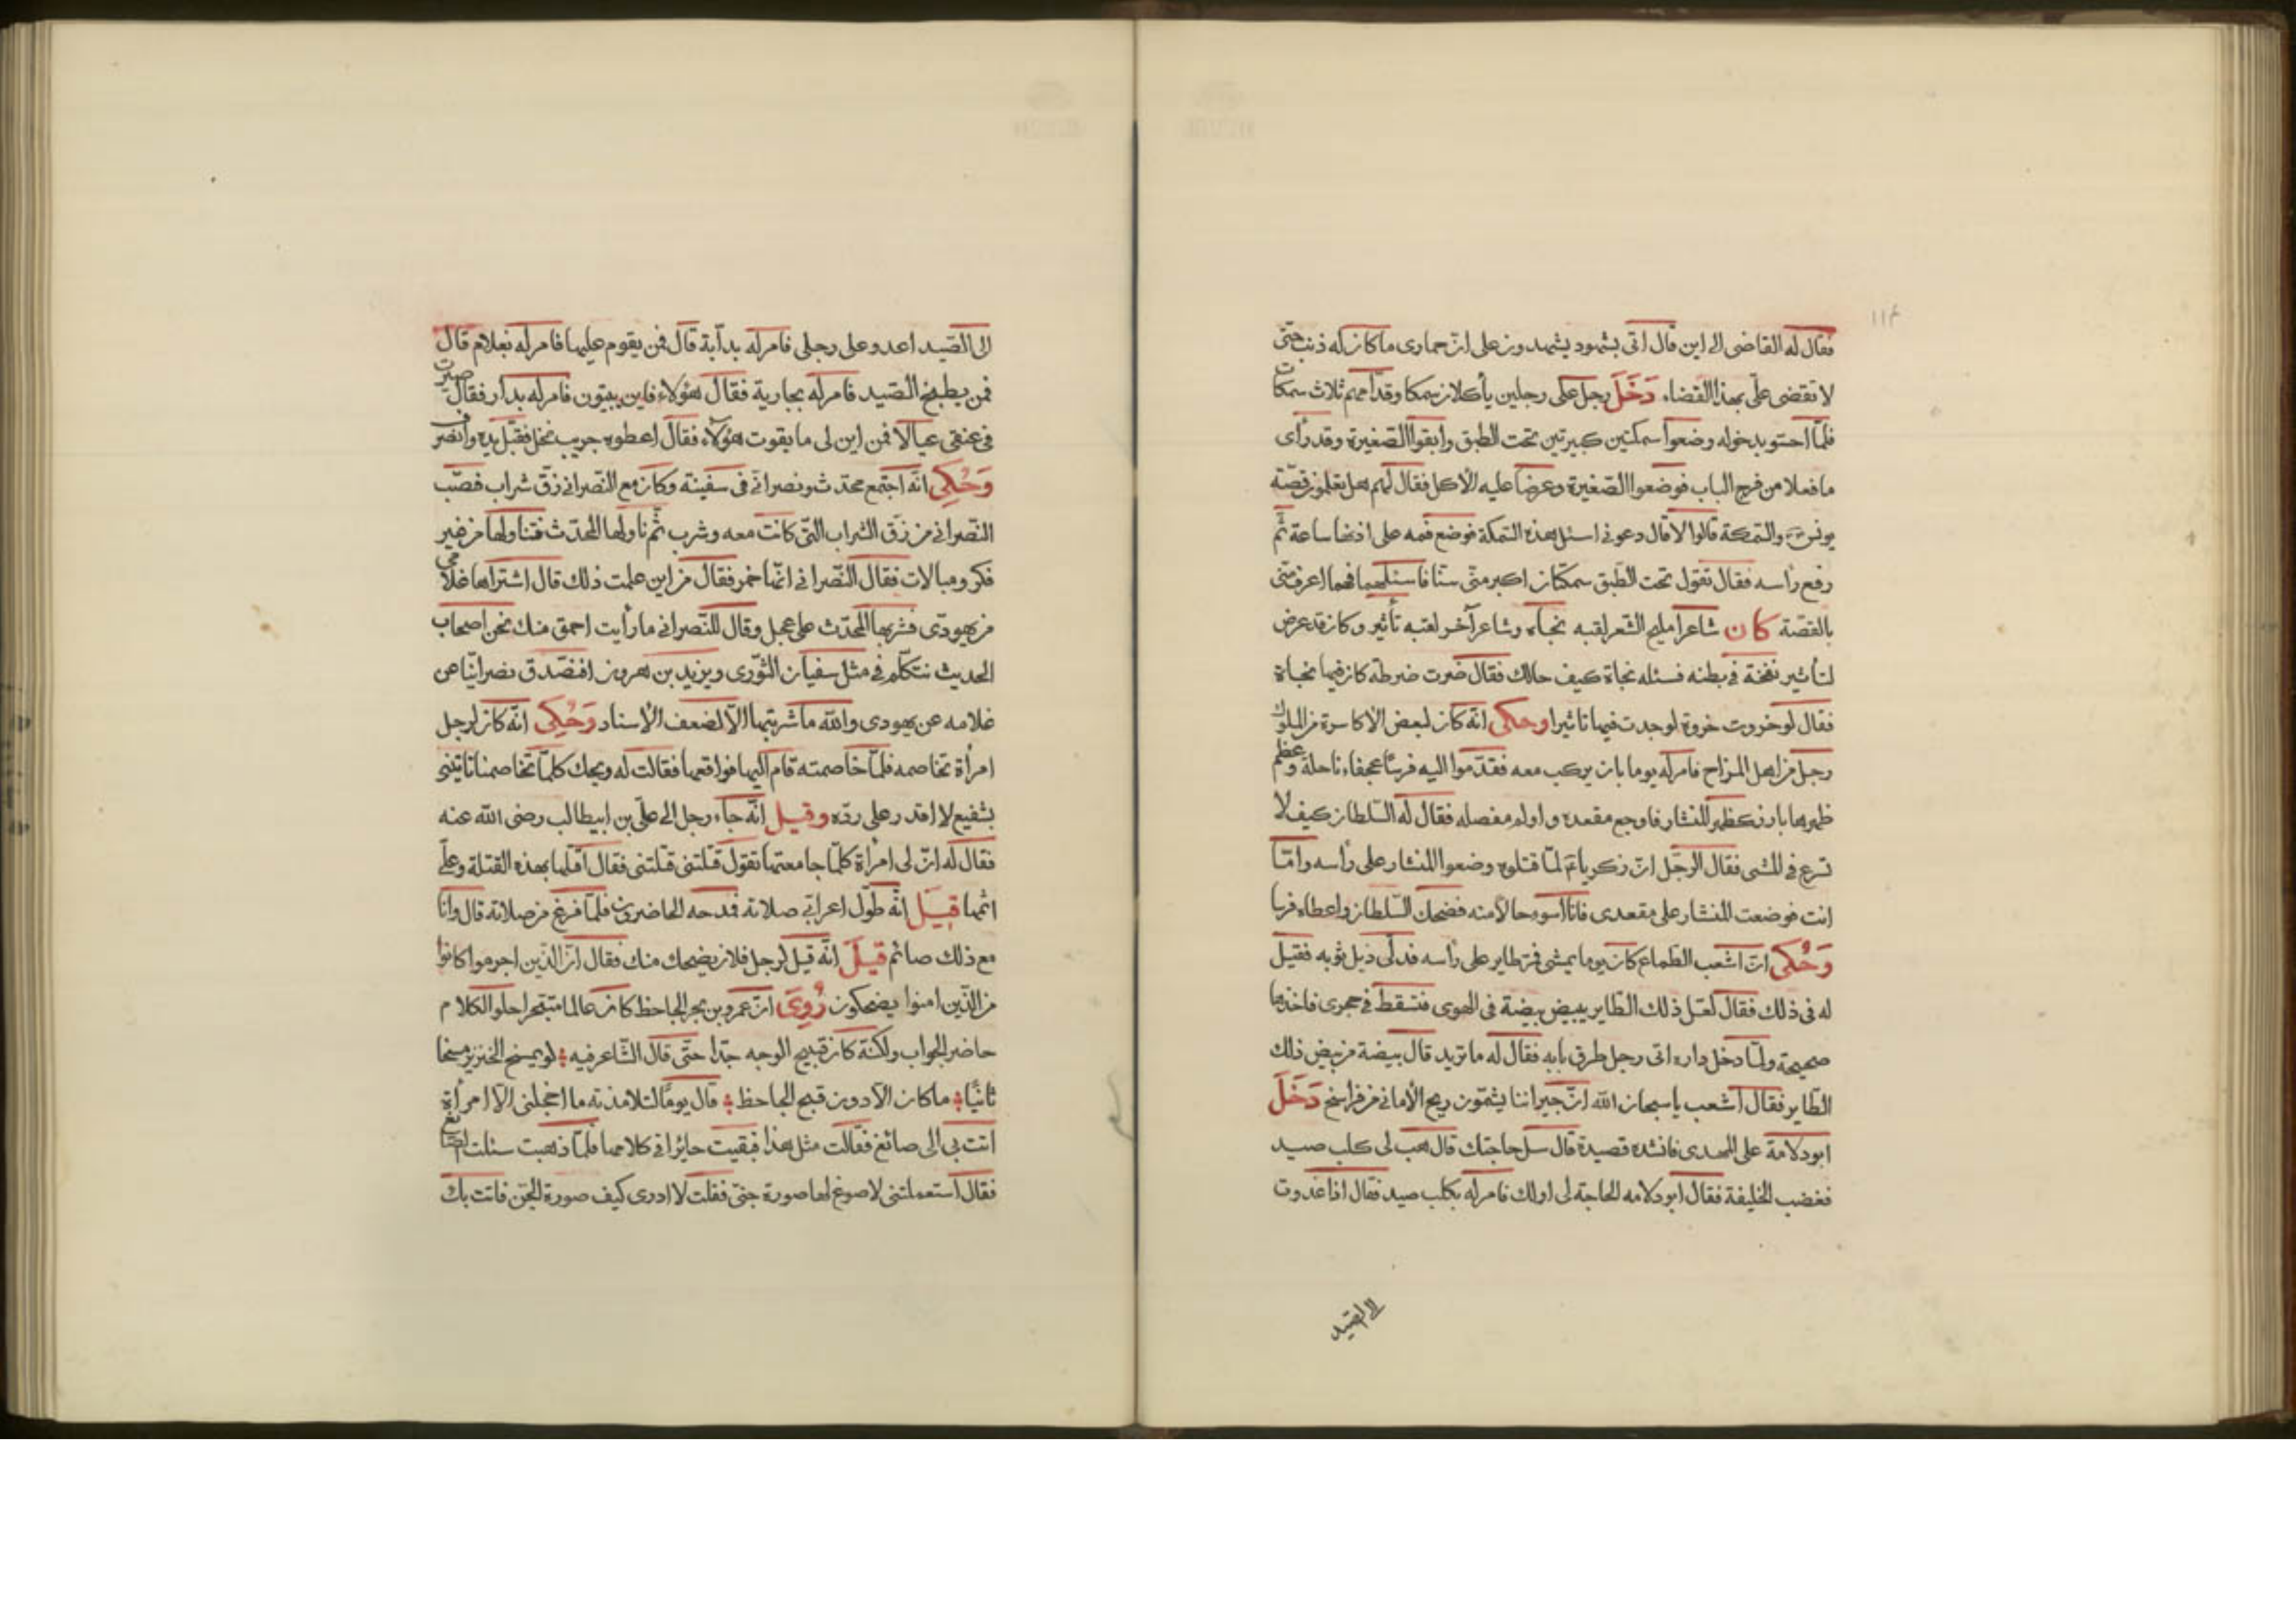 فقال له القاضى الى اين قال اتى بشهود يشهدون على ان حمارى ما كان له ذنب حتى
لا تقضى على بهذا القضاء دَخَلَ رجل على رجلين يأكلان سمكا وقدامهم ثلاث سمكات
فلما احسو بدخوله وضعوا سمكتين كبيرتين تحت الطبق وابقوا الصغيرة وقد رأى
ما فعلا من فرج الباب فوضعوا الصغيرة وعرضا عليه الأكل فقال لهم هل تعلمون قصّة
يونس والسمكة قالوا لا قال دعونى اسئل هذه السمكة فوضع فمه على اذنها ساعة ثم
رفع رأسه فقال تقول تحت الطبق سمكتان اكبر منّى سنّا فاسئلهما فهما اعرف منّى
بالقصّة كان شاعرا مليح الشعر لقبه نجاة وشاعر آخر لقبه تأثير وكان قد عرض
لتأثير نفخة فى بطنه فسئله نجاة كيف حالك فقال ضرت ضرطة كان فيها نجاة
فقال لو خروت خروة لوجدت فيها تاثيرا وحكى انّه كان لبعض الاكاسرة من الملوك
رجل من اهل المزاح فامر له يوما بان يركب معه فقدّموا اليه فرسًا عجفاء ناحلة وعظم
ظهرها بارز كظهر المنشار فاوجع مقعده واولم مفصله فقال له السّلطان كيف لا
تسرع فى المشى فقال الرجل انّ زكريا ءم لمّا قتلوه وضعوا المنشار على رأسه وامّا
انت فوضعت المنشار على مقعدى فانا اسوء حالا منه فضحك السّلطان واعطاه فرسا
وَحُكى انّ اشعب الطماع كان يوما يمشى فمر طاير على رأسه فدلّى ذيل ثوبه فقيل
له فى ذلك فقال لعل ذلك الطاير يبيض بيضة فى الهوى فتسقط فى حجرى فاخذها
صحيحة ولمّا دخل داره اتى رجل طرق بابه فقال له ما تريد قال بيضة من بيض ذلك
الطاير فقال اشعب يا سبحان الله انّ جيراننا يشمّون ريح الأمانى من فراسخ دَخَلَ
ابو دلامة على المهدى فانشده قصيدة قال سل حاجتك قال هب لى كلب صيد
فغضب الخليفة فقال ابو دلامه الحاجة لى او لك فامر له بكلب صيد فقال اذا غدوت
الى الصيد
الى الصّيد اعدو على رجلى فامر له بدآبة قال فمن يقوم عليها فامر له بغلام قال
فمن يطبخ الصّيد فامر له بجارية فقال هؤلاء فاين يبيتون فامر له بدار فقال صيرت
فى عنقى عيالا فمن اين لى ما يقوت هؤلاء فقال اعطوه جريب نخل فقبّل يده وانصرف
وَحُكِى انّه اجتمع محدّث ونصرانى فى سفينة وكان مع النصرانى زقّ شراب فصبّ
النّصرانى من زقّ الشراب التى كانت معه وشرب ثم ناولها المحدّث فتناولها من غير
فكر ومبالات فقال النّصرانى انّها خمر فقال من اين علمت ذلك قال اشتراها غلامى
من يهودى فشربها المحدّث على عجل وقال للنّصرانى ما رأيت احمق منك نحن اصحاب
الحديث نتكلّم فى مثل سفيان الثّورى ويزيد بن هرون افنصدق نصرانيّا عن
غلامه عن يهودى والله ما شربتها الاّ لضعف الأسناد وَحُكِى انّه كان لرجل
امرأة تخاصمه فلمّا خاصمته قام اليها فواقعها فقالت له ويحك كلمّا تخاصمنا تاتينى
بشفيع لا اقدر على ردّه وقيل انّه جاء رجل الى علىّ بن ابيطالب رضى الله عنه
فقال له انّ لى امرأة كلّما جامعتها تقول قتلتنى قتلتنى فقال اقتلها بهذه القتلة وعلىّ
اثمها قيلَ انّه طوّل اعرابى صلاته فمدحه الحاضرون فلمّا فرغ من صلاته قال وانا
مع ذلك صائم قيلَ انّه قيل لرجل فلان يضحك منك فقال انّ الّذين اجرموا كانوا
من الّذين امنوا يضحكون رُوِىَ انّ عمرو بن بحر الجاحظ كان عالما متبحرا حلو الكلام
حاضر الجواب ولكنّه كان قبيح الوجه جدّا حتّى قال الشّاعر فيه لو يمسخ الخنزير مسخا
ثانيًا ما كان الّا دون قبح الجاحظ قال يومًا لتلامذته ما اخجلنى الّا امرأة
اتت بى الى صائغ فقالت مثل هذا فبقيت حايرا فى كلامها فلمّا ذهبت سئلت الصّائغ
فقال استعملتنى لاصوغ لها صورة جنّى فقلت لا ادرى كيف صورة الجنّ فاتت بك